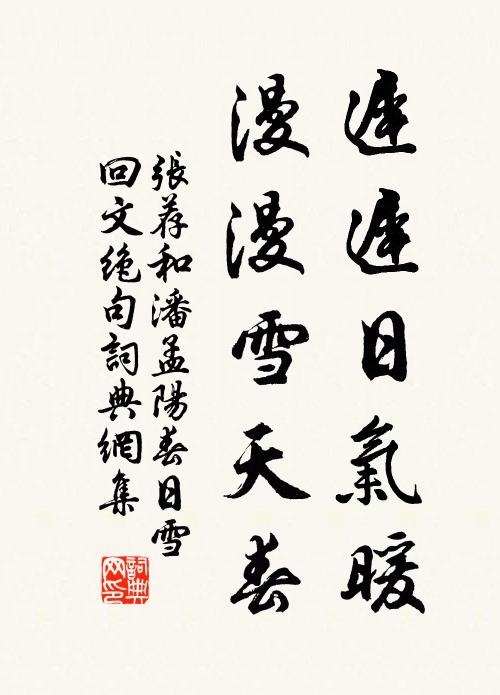 遲遲日氣暖
漫漫雪天春
張荐和潘孟陽春日雪
回文絶句詞典網集
詞典网印